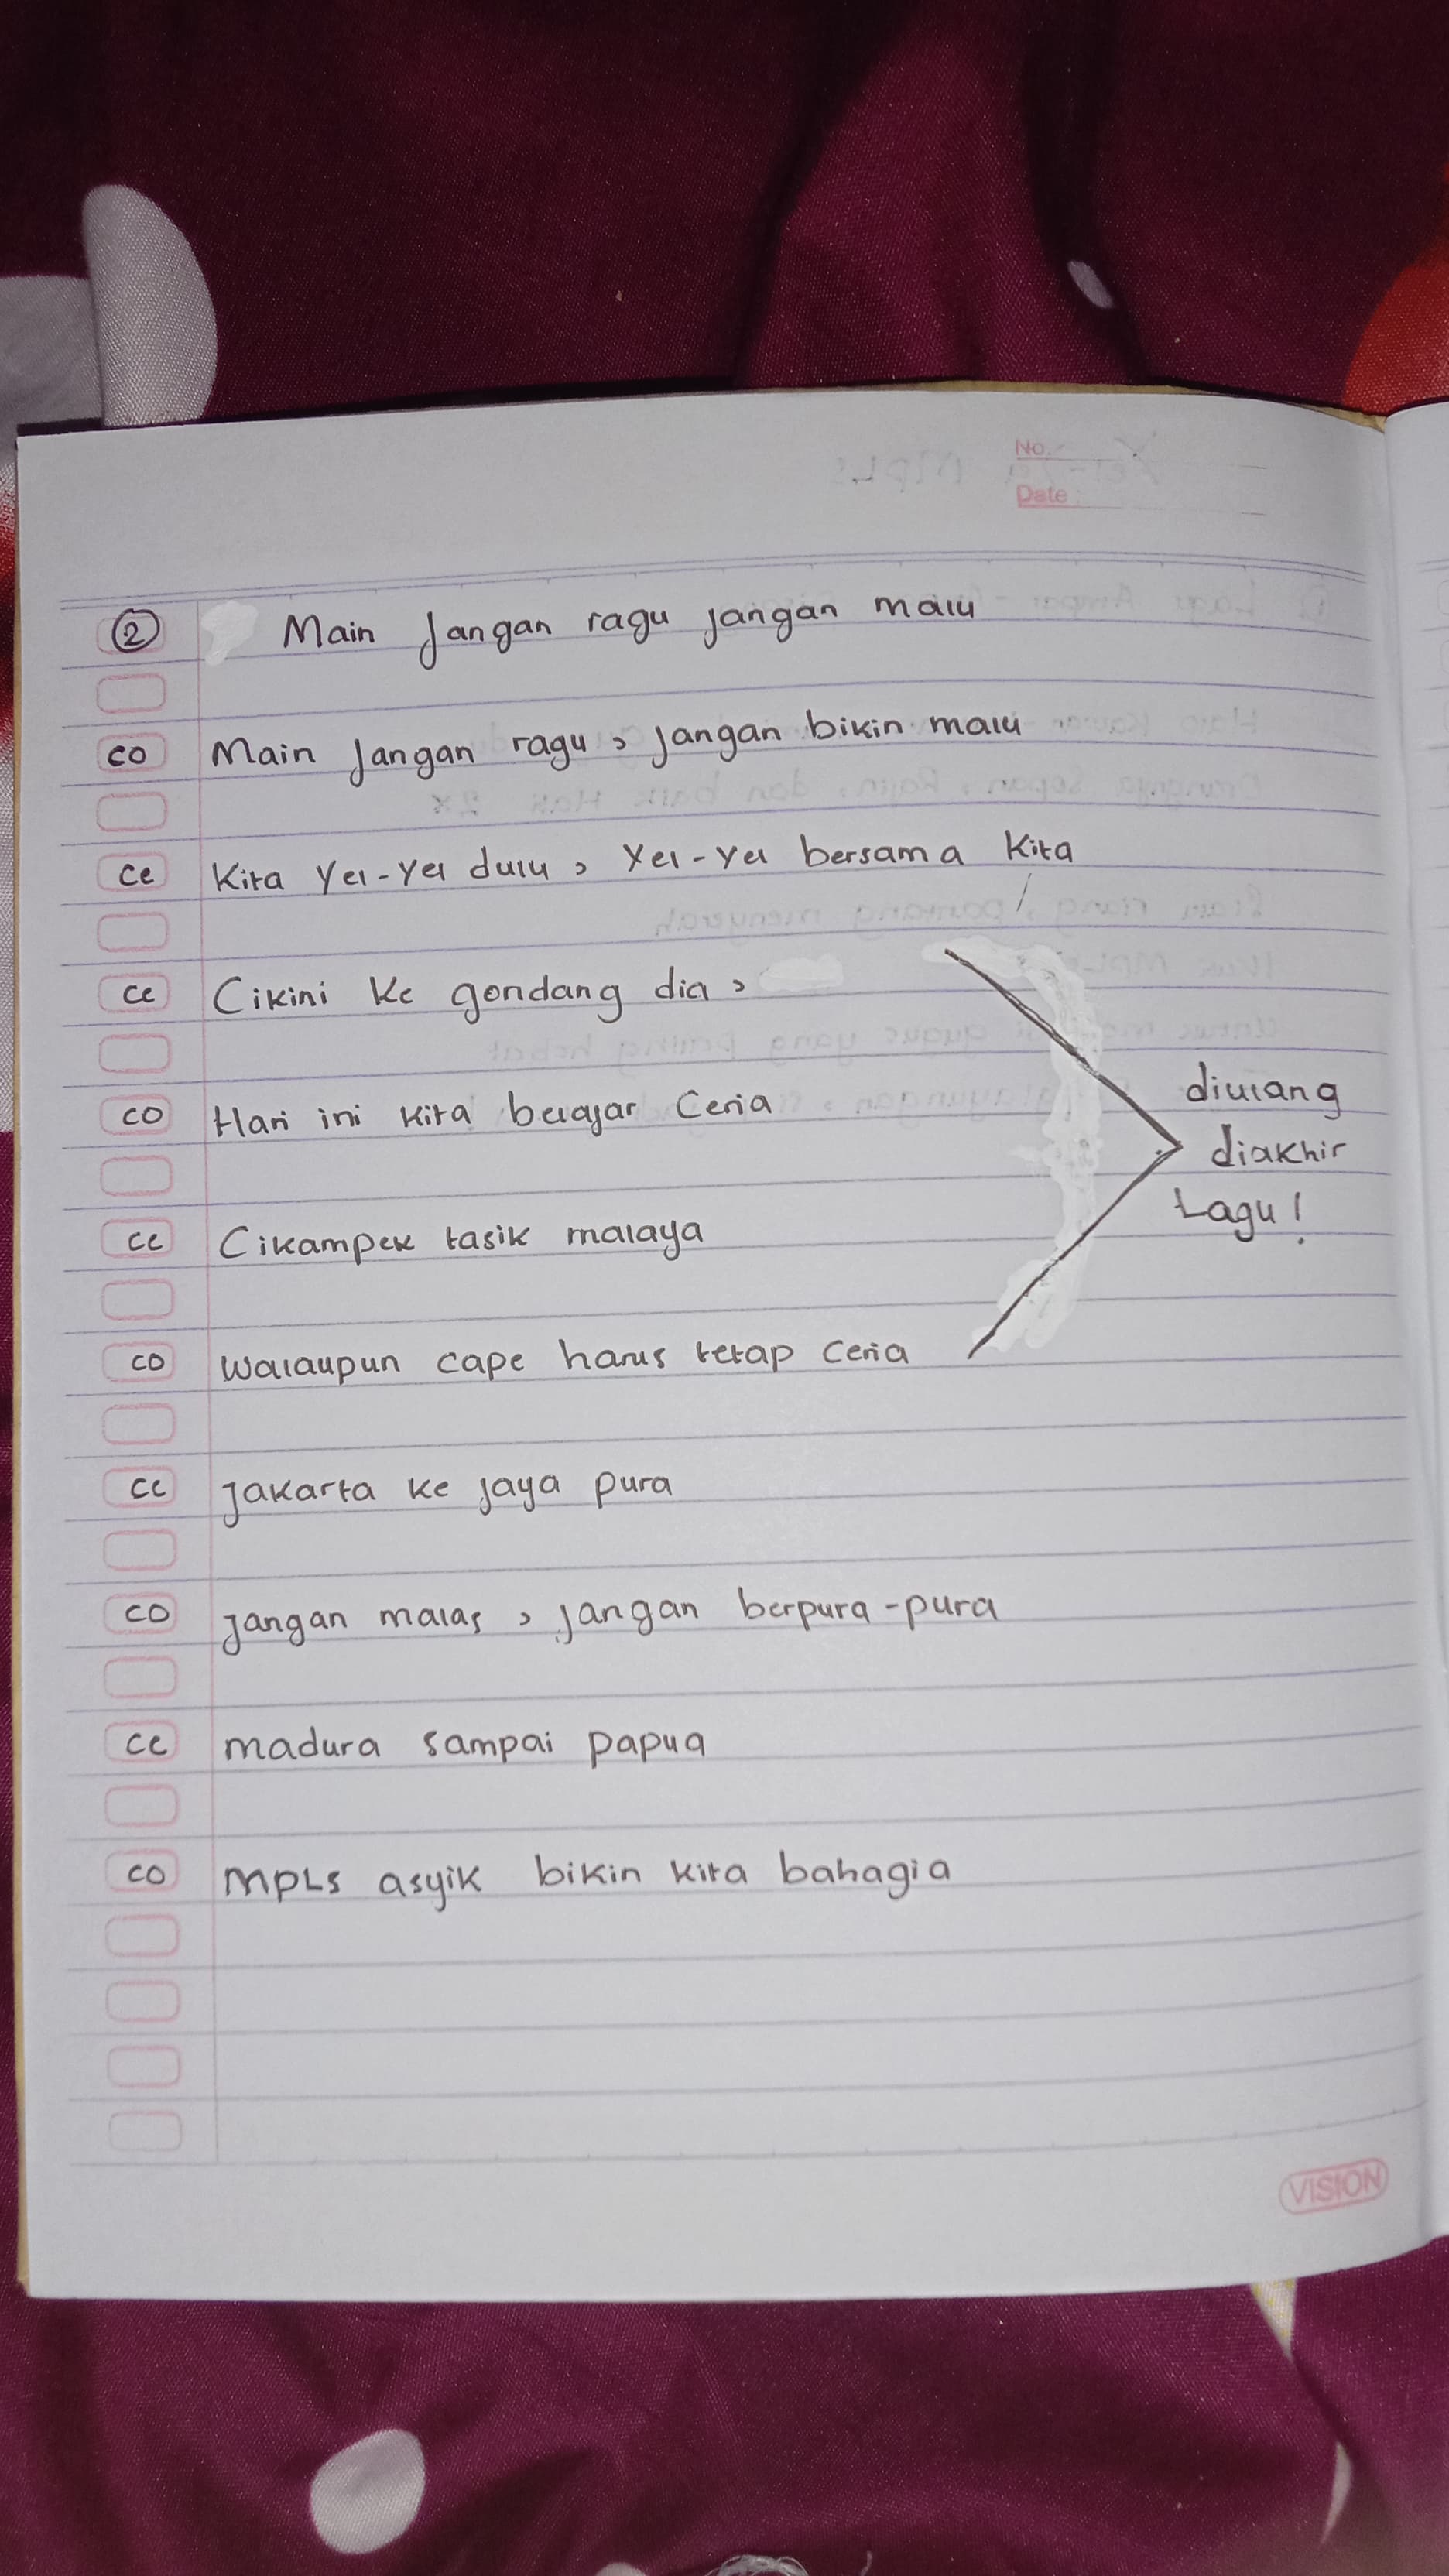 No.
Date :
② Main Jangan ragu jangan malu
co Main Jangan ragu, jangan bikin malu
ce Kita Yel-Yel dulu, Yel-Yel bersama Kita
ce Cikini Ke gondang dia,
co Hari ini Kita belajar Ceria
ce Cikampek tasik malaya
co Walaupun cape harus tetap Ceria
diulang
diakhir
Lagu!
ce Jakarta ke jaya pura
co Jangan malas, jangan berpura-pura
ce madura sampai papua
co MPLS asyik bikin kita bahagia
VISION